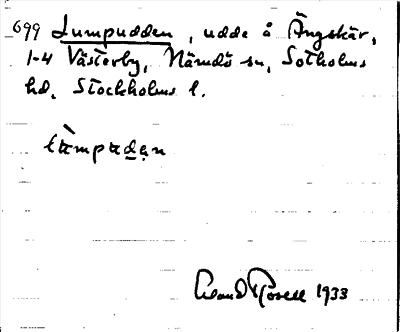 699 Lumpudden, udde å Ängskär,
1-4 Västerby, Nämdö sn, Sotholms
hd. Stockholms l.
1933